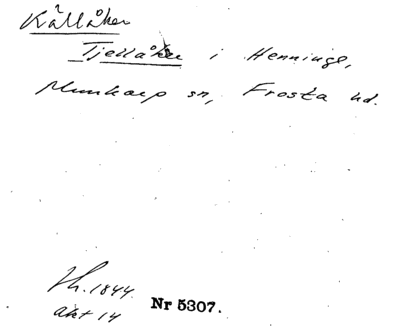 Källåker
Tjellåker i Henninge,
Munkarp sn, Frosta hd.
Sk. 1844.
akt 14
Nr 5307.